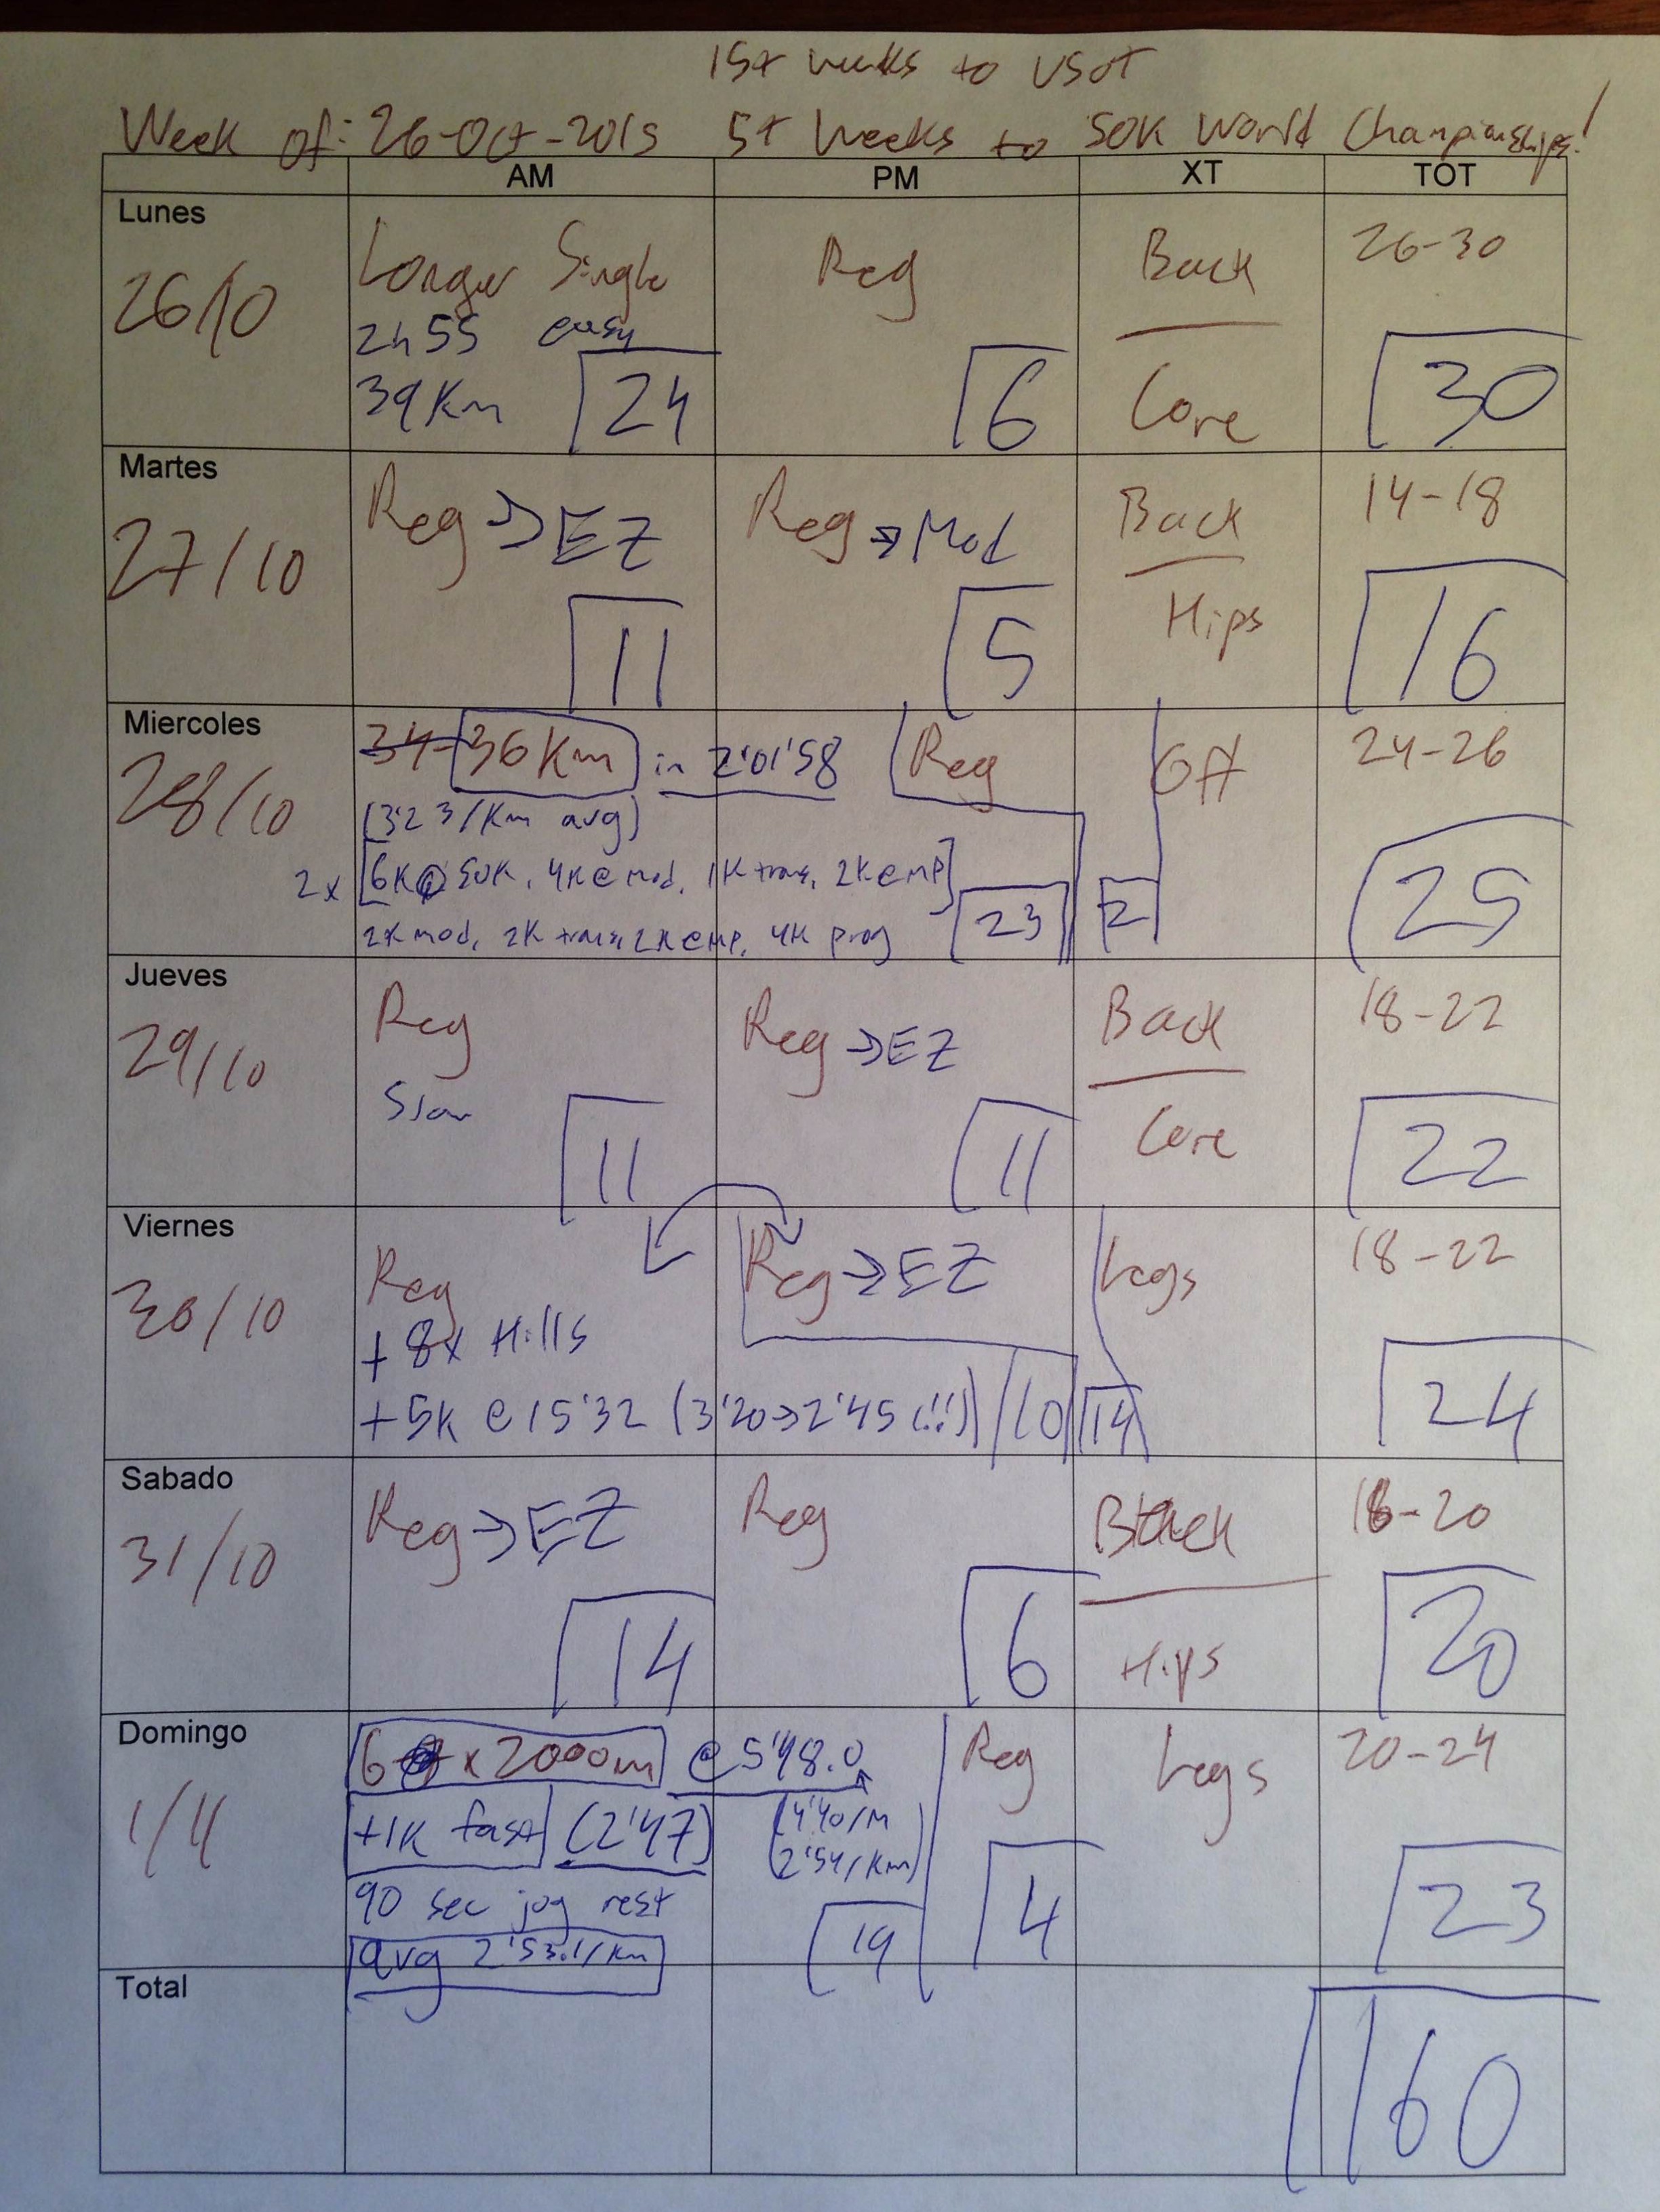 15+ weeks to USOT
Week of: 26-Oct-2015 5+ weeks to 50K World Championships!
AM PM XT TOT
Lunes
26/10
Longer Single
2h55 easy
39Km 24
Reg
6
Back
Core
26-30
30
Martes
27/10
Reg → EZ
11
Reg → Mod
5
Back
Hips
14-18
16
Miercoles
28/10
34-36Km in 2'01'58
(3'23/Km avg)
2x [6K@50K, 4K@mod, 1K trans, 2K@MP]
2K mod, 2K trans, 2K@MP, 4K prog 23
Reg
2
Off
24-26
25
Jueves
29/10
Reg
Slow
11
Reg → EZ
11
Back
Core
18-22
22
Viernes
30/10
Reg
+ 8x Hills
+5K @ 15'32 (3'20→2'45 (!!)) 10
Reg → EZ
14
Legs
18-22
24
Sabado
31/10
Reg → EZ
14
Reg
6
Back
Hips
18-20
20
Domingo
1/11
6 x 2000m @ 5'48.0
+1K fast (2'47)
(4'40/M
2'54/Km)
90 sec jog rest
avg 2'53.1/Km
19
Reg
4
Legs
20-24
23
Total
160